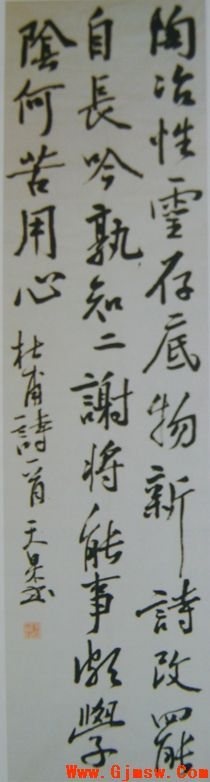 陶冶性灵存底物新詩改罷
自長吟孰知二謝将能事頗學
陰何苦用心
杜甫詩一首 天泉书
www.Gjmsw.com